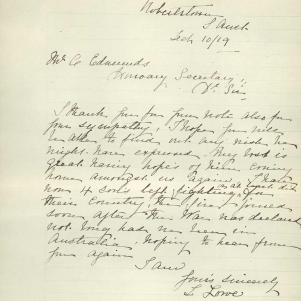 Robertstown
S Aust
Feb 10/19
Mr C Edmunds
Honorary Secretary,
Dr Sir
I thank you for your note also for
your sympathy, I hope you will
be able to find out any wish he
might have expressed. Mrs Lowe is
great hopes of him coming
home amongst us again, I had
now 4 sons left fighting for
their Country, the first joined
soon after the War was declared
not long had he been in
Australia, hoping to hear from
you again
I am
Yours sincerely
L Lowe